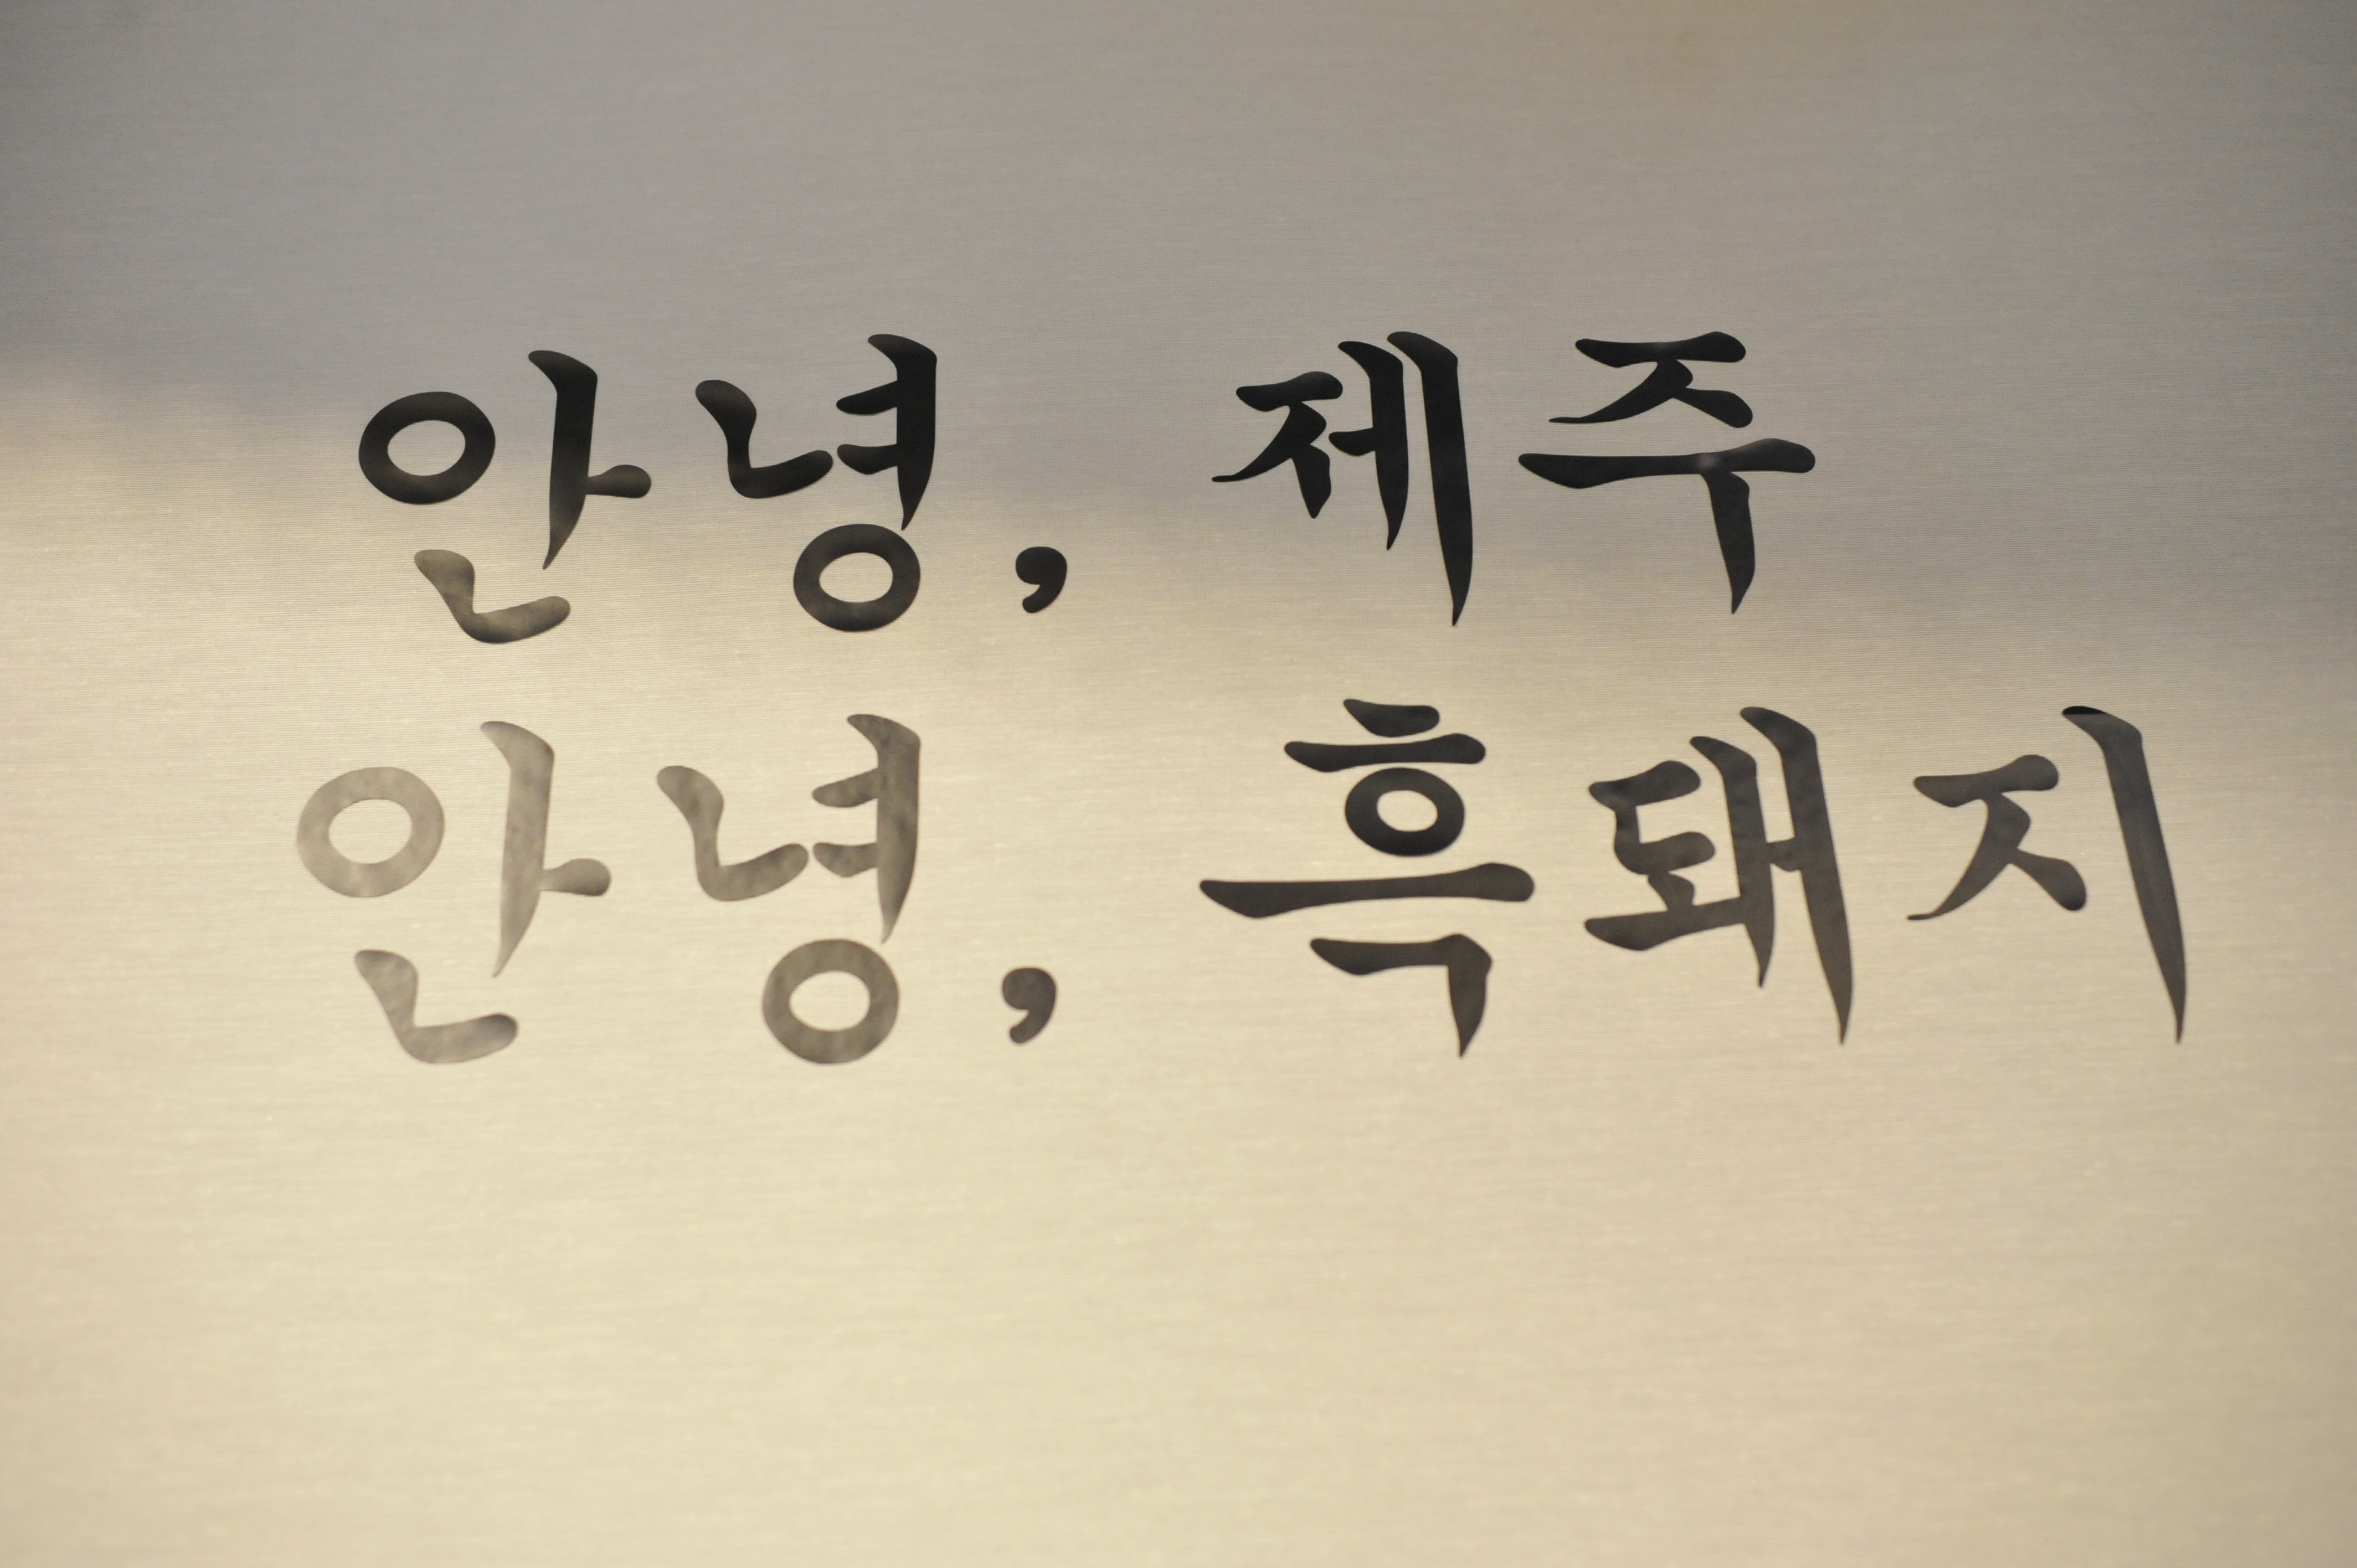 안녕, 제주
안녕, 흑돼지